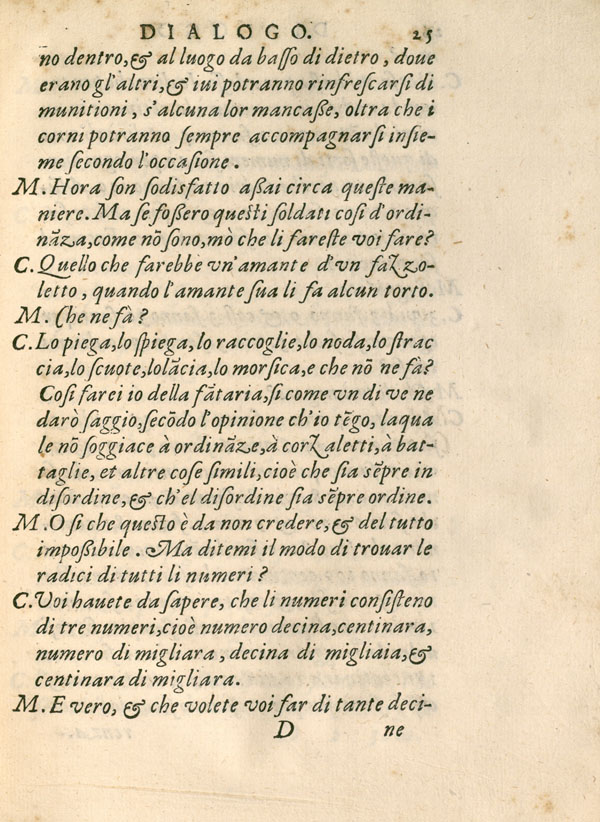 DIALOGO. 25
no dentro, & al luogo da baſſo di dietro, doue
erano gl'altri, & iui potranno rinfreſcarſi di
munitioni, s'alcuna lor mancaße, oltra che i
corni potranno ſempre accompagnarſi inſie-
me ſecondo l'occaſione.
M. Hora ſon ſodisfatto aßai circa queſte ma-
niere. Ma ſe foßero queſti ſoldati coſi d'ordi-
nãza, come nõ ſono, mò che li fareſte voi fare?
C. Quello che farebbe vn'amante d'vn fazzo-
letto, quando l'amante ſua li fa alcun torto.
M. Che ne fà?
C. Lo piega, lo ſpiega, lo raccoglie, lo noda, lo ſtrac
cia, lo ſcuote, lolãcia, lo morſica, e che nõ ne fà?
Coſi farei io della fãtaria, ſi come vn dì ve ne
darò ſaggio, ſecõdo l'opinione ch'io tẽgo, laqua
le nõ ſoggiace à ordinãze, à corzaletti, à bat-
taglie, et altre coſe ſimili, cioè che ſia sẽpre in
diſordine, & ch'el diſordine ſia sẽpre ordine.
M. O ſi che queſto è da non credere, & del tutto
impoßibile. Ma ditemi il modo di trouar le
radici di tutti li numeri?
C. Voi hauete da ſapere, che li numeri conſiſteno
di tre numeri, cioè numero decina, centinara,
numero di migliara, decina di migliaia, &
centinara di migliara.
M. E vero, & che volete voi far di tante deci-
D ne